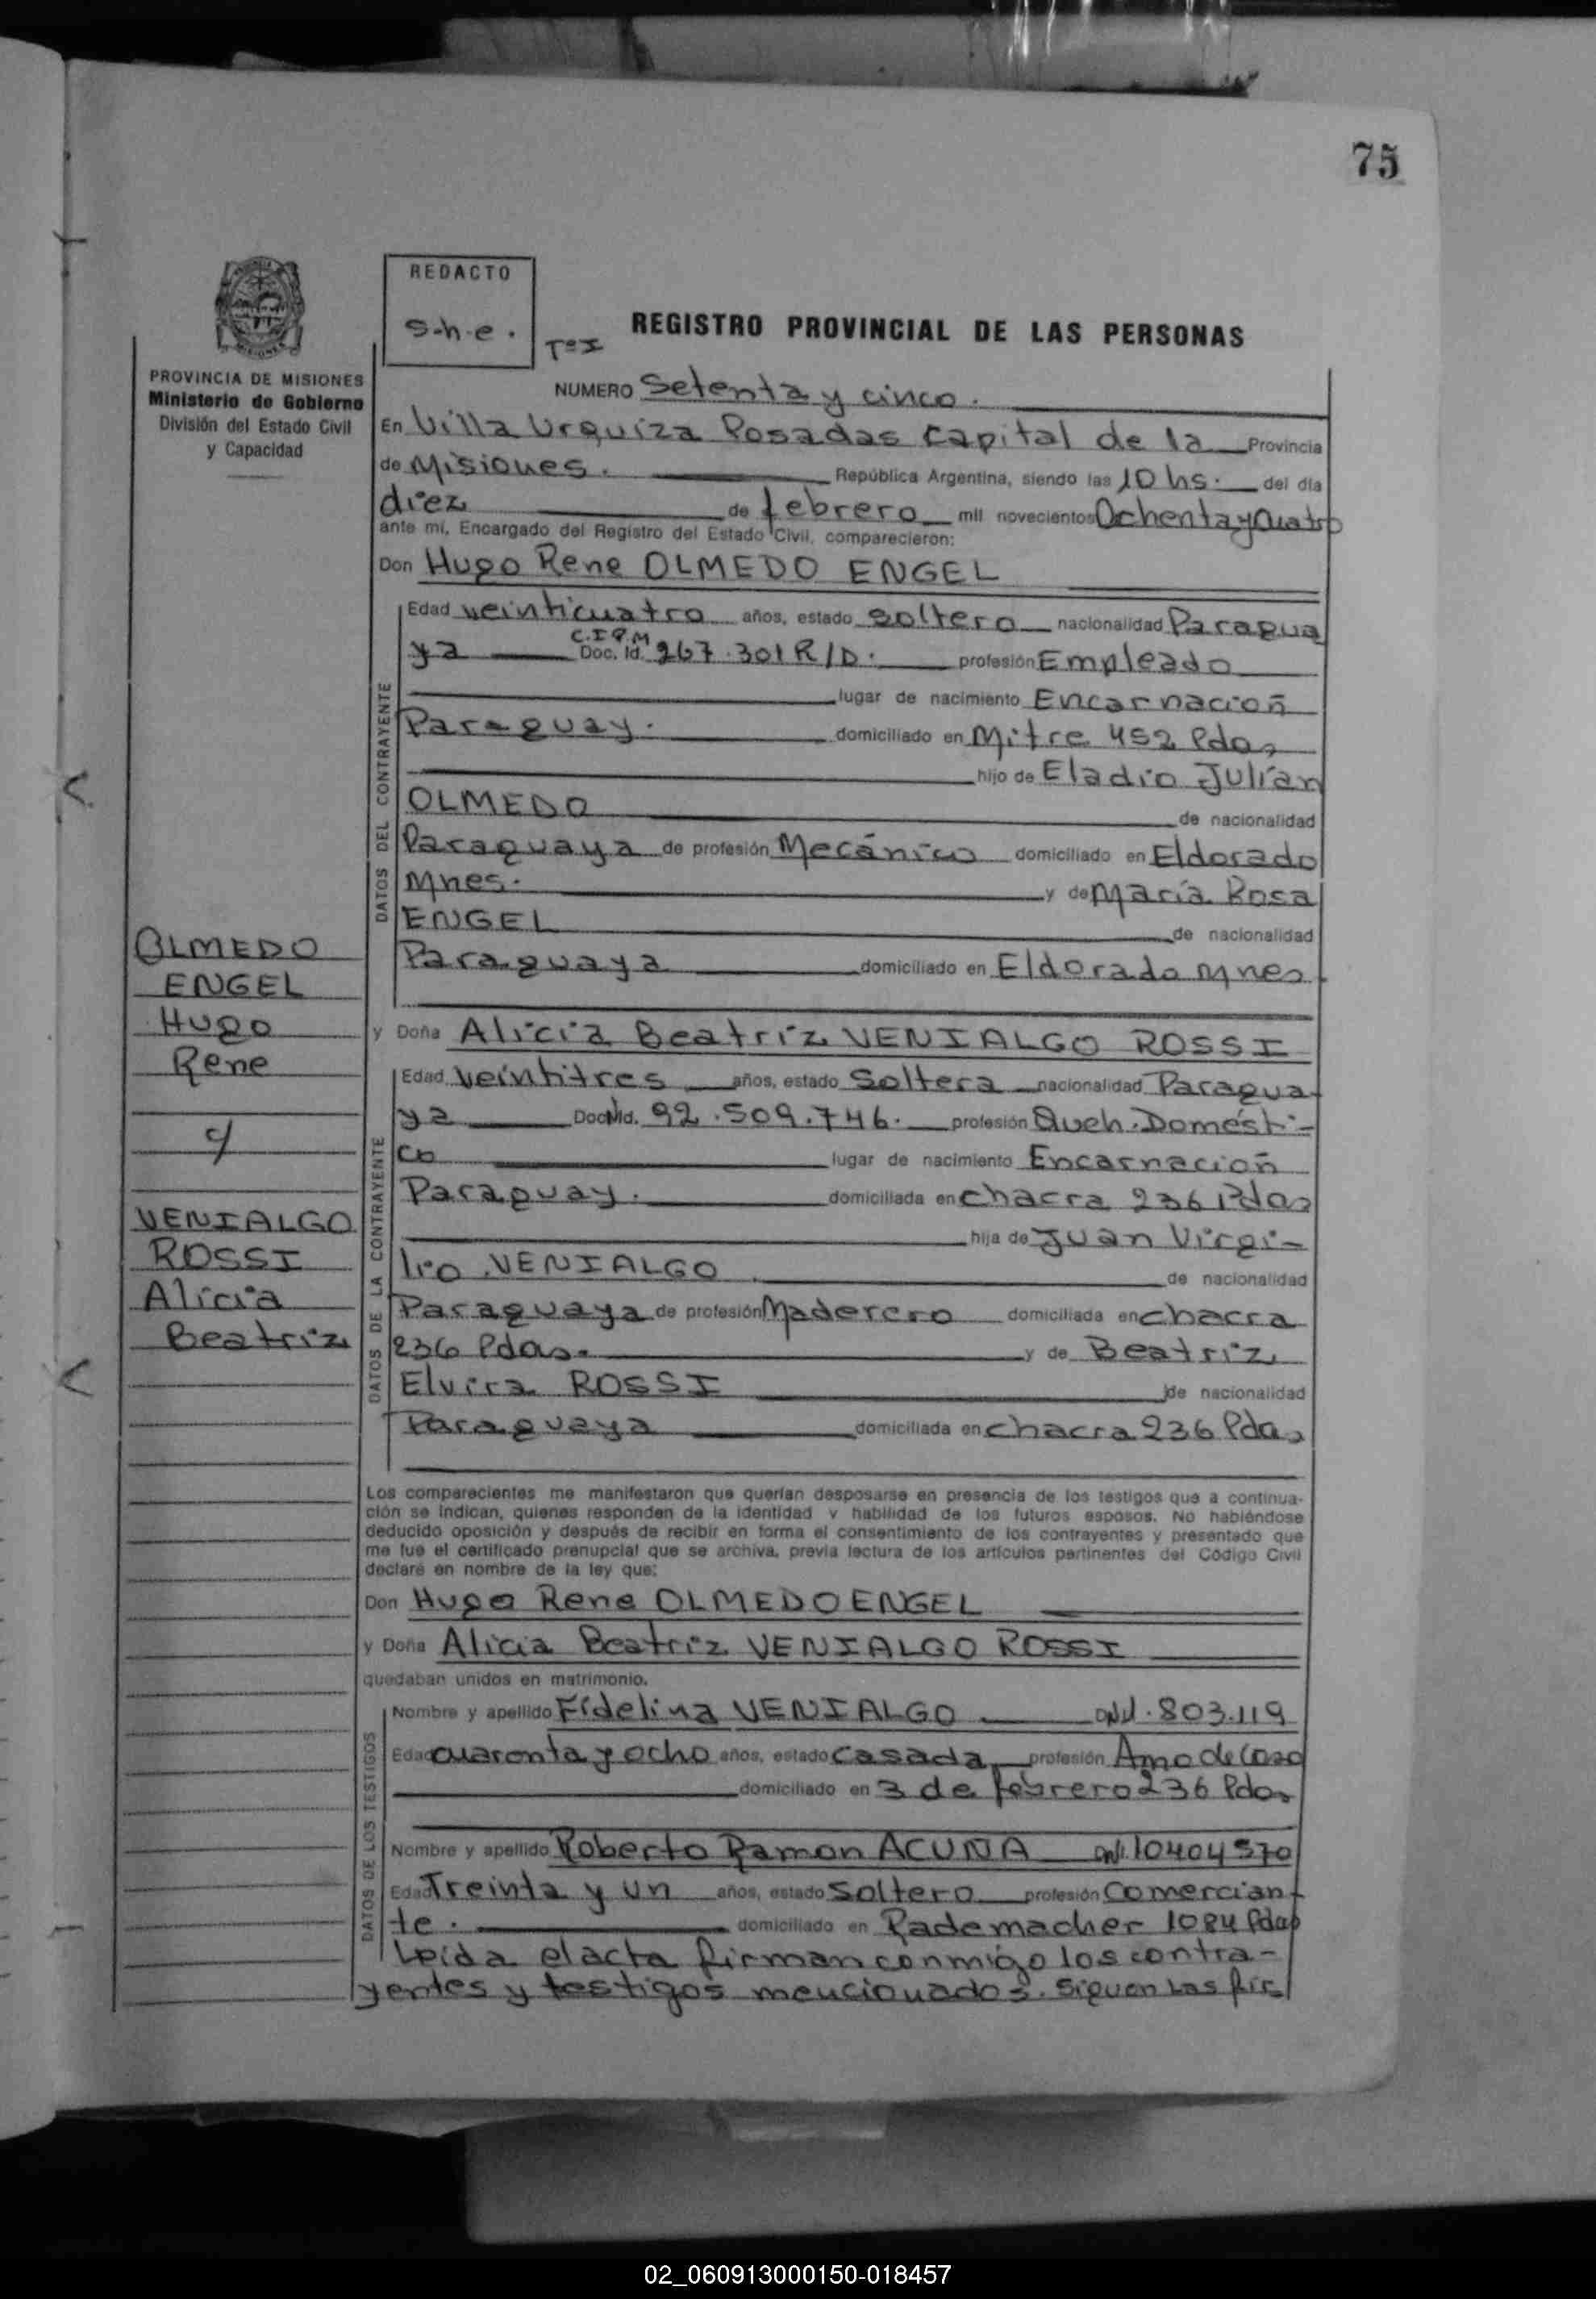 75
REDACTO
S-h-e.
Tº I
REGISTRO PROVINCIAL DE LAS PERSONAS
PROVINCIA DE MISIONES
Ministerio de Gobierno
División del Estado Civil
y Capacidad
NUMERO Setenta y cinco.
En Villa Urquiza Posadas Capital de la Provincia
de Misiones. República Argentina, siendo las 10 hs. del día
diez de febrero mil novecientos Ochenta y Cuatro
ante mí, Encargado del Registro del Estado Civil, comparecieron:
Don Hugo Rene OLMEDO ENGEL
DATOS DEL CONTRAYENTE
Edad veinticuatro años, estado soltero nacionalidad Paragua
C.I.P.M
ya Doc. Id. 267.301 R/D. profesión Empleado
lugar de nacimiento Encarnación
Paraguay. domiciliado en Mitre 452 Pdas
hijo de Eladio Julian
OLMEDO de nacionalidad
Paraguaya de profesión Mecánico domiciliado en Eldorado
Mnes. y de María Rosa
ENGEL de nacionalidad
Paraguaya domiciliado en Eldorado Mnes.
OLMEDO
ENGEL
Hugo
Rene
c/
VENIALGO
ROSSI
Alicia
Beatriz
y Doña Alicia Beatriz VENIALGO ROSSI
DATOS DE LA CONTRAYENTE
Edad veintitres años, estado Soltera nacionalidad Paragua-
ya Doc. Id. 92.509.746. profesión Queh. Domésti-
co lugar de nacimiento Encarnación
Paraguay. domiciliada en chacra 236 Pdas
hija de Juan Virgi-
lio VENIALGO de nacionalidad
Paraguaya de profesión Maderero domiciliada en chacra
236 Pdas. y de Beatriz
Elvira ROSSI de nacionalidad
Paraguaya domiciliada en chacra 236 Pdas
Los comparecientes me manifestaron que querían desposarse en presencia de los testigos que a continua-
ción se indican, quienes responden de la identidad y habilidad de los futuros esposos. No habiéndose
deducido oposición y después de recibir en forma el consentimiento de los contrayentes y presentado que
me fue el certificado prenupcial que se archiva, previa lectura de los artículos pertinentes del Código Civil
declaré en nombre de la ley que:
Don Hugo Rene OLMEDO ENGEL
y Doña Alicia Beatriz VENIALGO ROSSI
quedaban unidos en matrimonio.
DATOS DE LOS TESTIGOS
Nombre y apellido Fidelina VENIALGO 803.119
Edad cuarenta y ocho años, estado casada profesión Ama de Casa
domiciliado en 3 de febrero 236 Pdas
Nombre y apellido Roberto Ramon ACUÑA DNI. 10404570
Edad Treinta y un años, estado soltero profesión Comercian-
te. domiciliado en Rademacher 1084 Pdas
Leida el acta firman conmigo los contra-
yentes y testigos mencionados. Siguen las fir_
02_060913000150-018457